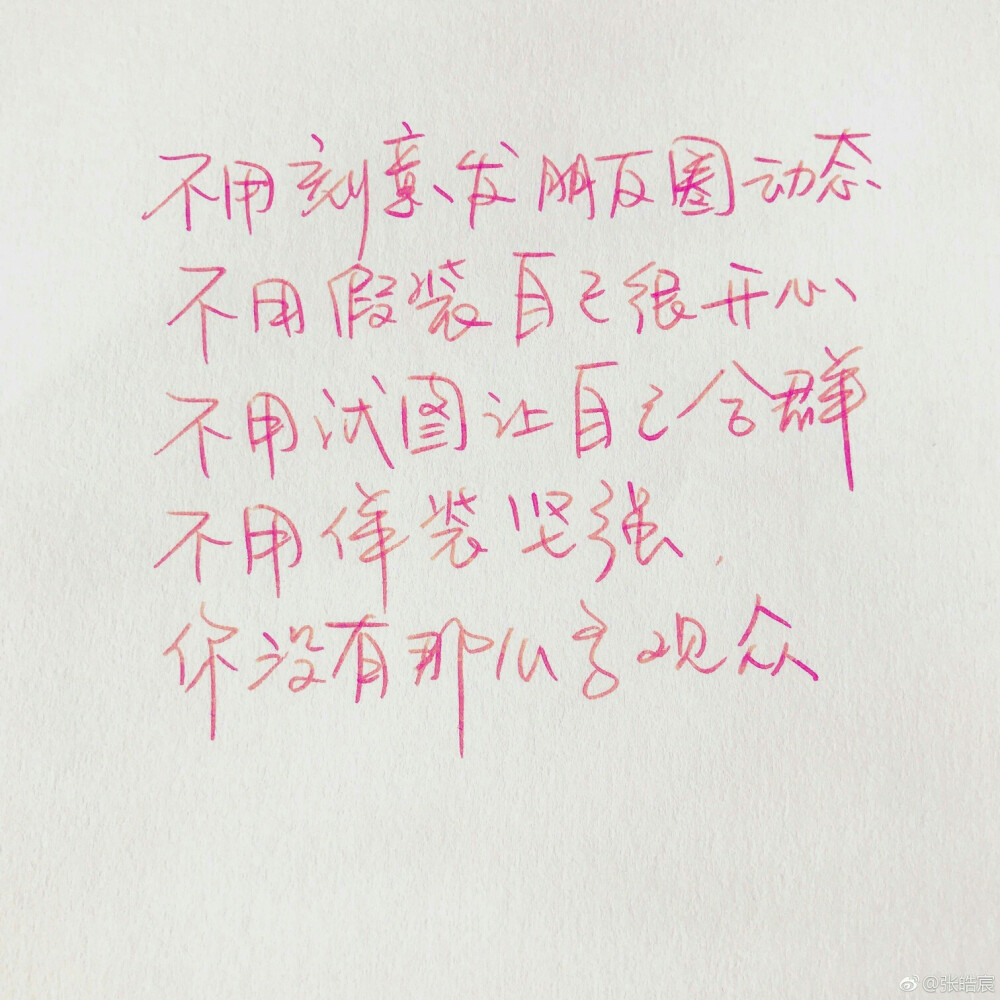 不用刻意发朋友圈动态
不用假装自己很开心
不用试图让自己合群
不用佯装坚强.
你没有那么多观众
@张皓宸